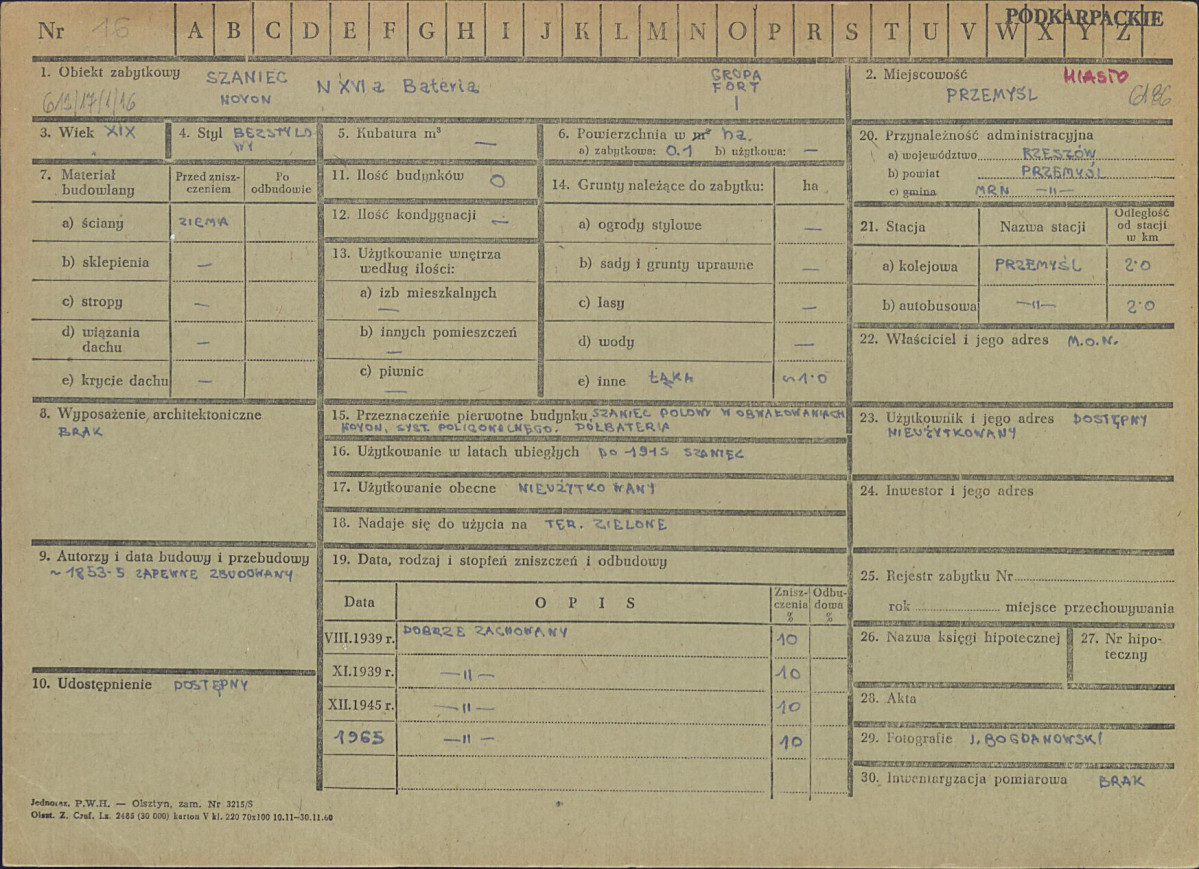 PODKARPACKIE
Nr 16 A B C D E F G H I J K L M N O P R S T U V W X Y Z
1. Obiekt zabytkowy SZANIEC N XVI a Bateria GRUPA
NOYON FORT
I
2. Miejscowość MIASTO
PRZEMYŚL 6186
3. Wiek XIX
4. Styl BEZSTYLO
WY
5. Kubatura m³ —
6. Powierzchnia w m² ha.
a) zabytkowa: 0.1 b) użytkowa: —
7. Materiał budowlany
Przed zniszczeniem
Po odbudowie
a) ściany ZIEMIA
b) sklepienia —
c) stropy —
d) wiązania dachu —
e) krycie dachu —
8. Wyposażenie architektoniczne
BRAK
9. Autorzy i data budowy i przebudowy
~ 1853-5 ZAPEWNE ZBUDOWANY
10. Udostępnienie DOSTĘPNY
11. Ilość budynków 0
12. Ilość kondygnacji —
13. Użytkowanie wnętrza
według ilości:
a) izb mieszkalnych
—
b) innych pomieszczeń
—
c) piwnic
—
14. Grunty należące do zabytku: ha
a) ogrody stylowe —
b) sady i grunty uprawne —
c) lasy —
d) wody —
e) inne ŁĄKA ~1·0
15. Przeznaczenie pierwotne budynku SZANIEC POLOWY W OBWAŁOWANIACH
NOYON, SYST. POLIGONALNEGO. PÓŁBATERIA
16. Użytkowanie w latach ubiegłych DO 1915 SZANIEC
17. Użytkowanie obecne NIEUŻYTKOWANY
18. Nadaje się do użycia na TER. ZIELONE
19. Data, rodzaj i stopień zniszczeń i odbudowy
Data O P I S Zniszczenia % Odbudowa %
VIII.1939 r. DOBRZE ZACHOWANY 10
XI.1939 r. —II— 10
XII.1945 r. —II— 10
1965 —II— 10
20. Przynależność administracyjna
a) województwo RZESZÓW
b) powiat PRZEMYŚL
c) gmina MRN —II—
21. Stacja Nazwa stacji Odległość od stacji w km
a) kolejowa PRZEMYŚL 2·0
b) autobusowa —II— 2·0
22. Właściciel i jego adres M.O.N.
23. Użytkownik i jego adres DOSTĘPNY
NIEUŻYTKOWANY
24. Inwestor i jego adres
25. Rejestr zabytku Nr
rok miejsce przechowywania
26. Nazwa księgi hipotecznej
27. Nr hipoteczny
28. Akta
29. Fotografie J. BOGDANOWSKI
30. Inwentaryzacja pomiarowa BRAK
P.W.H. — Olsztyn, zam. Nr 3215/S
Olszt. Z. Graf. Lz. 2485 (30 000) karton V kl. 220 70x100 10.11—30.11.60